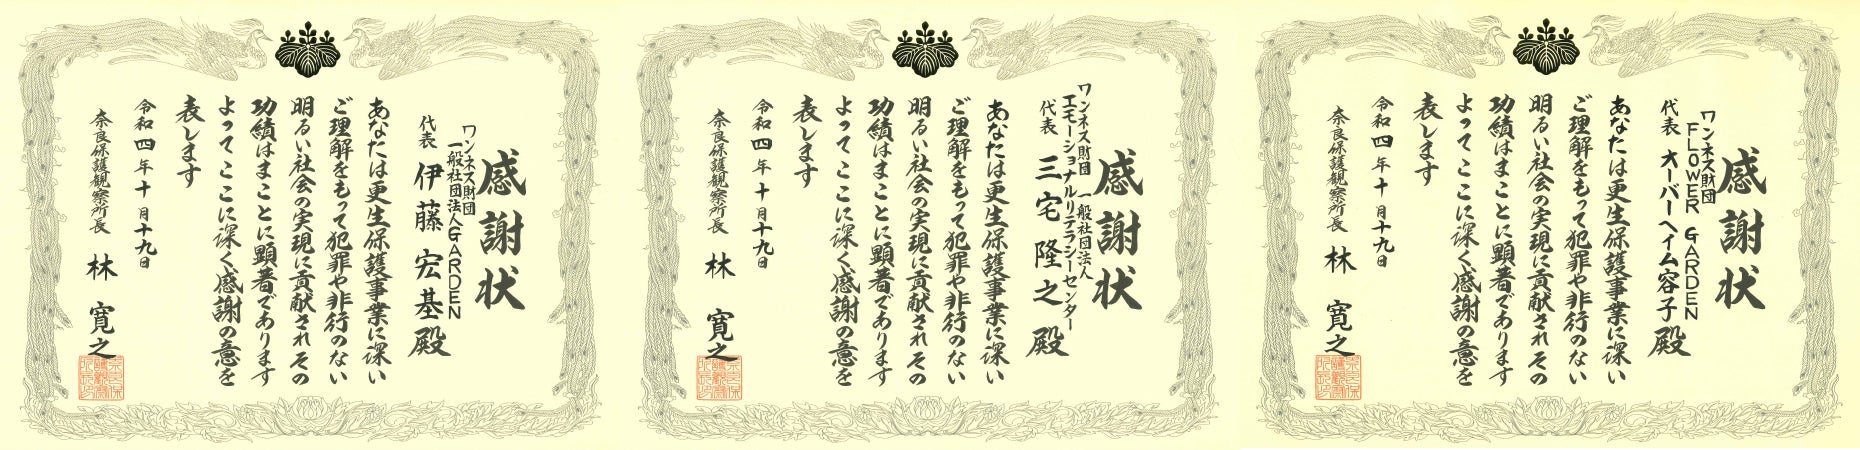 感謝状
ワンネス財団
一般社団法人GARDEN
代表 伊藤宏基殿
あなたは更生保護事業に深い
ご理解をもって犯罪や非行のない
明るい社会の実現に貢献されその
功績はまことに顕著であります
よってここに深く感謝の意を
表します
令和四年十月十九日
奈良保護観察所長 林寛之
感謝状
ワンネス財団 一般社団法人
エモーショナルリテラシーセンター
代表 三宅隆之殿
あなたは更生保護事業に深い
ご理解をもって犯罪や非行のない
明るい社会の実現に貢献されその
功績はまことに顕著であります
よってここに深く感謝の意を
表します
令和四年十月十九日
奈良保護観察所長 林寛之
感謝状
ワンネス財団
FLOWER GARDEN
代表 オーバーヘイム容子殿
あなたは更生保護事業に深い
ご理解をもって犯罪や非行のない
明るい社会の実現に貢献されその
功績はまことに顕著であります
よってここに深く感謝の意を
表します
令和四年十月十九日
奈良保護観察所長 林寛之